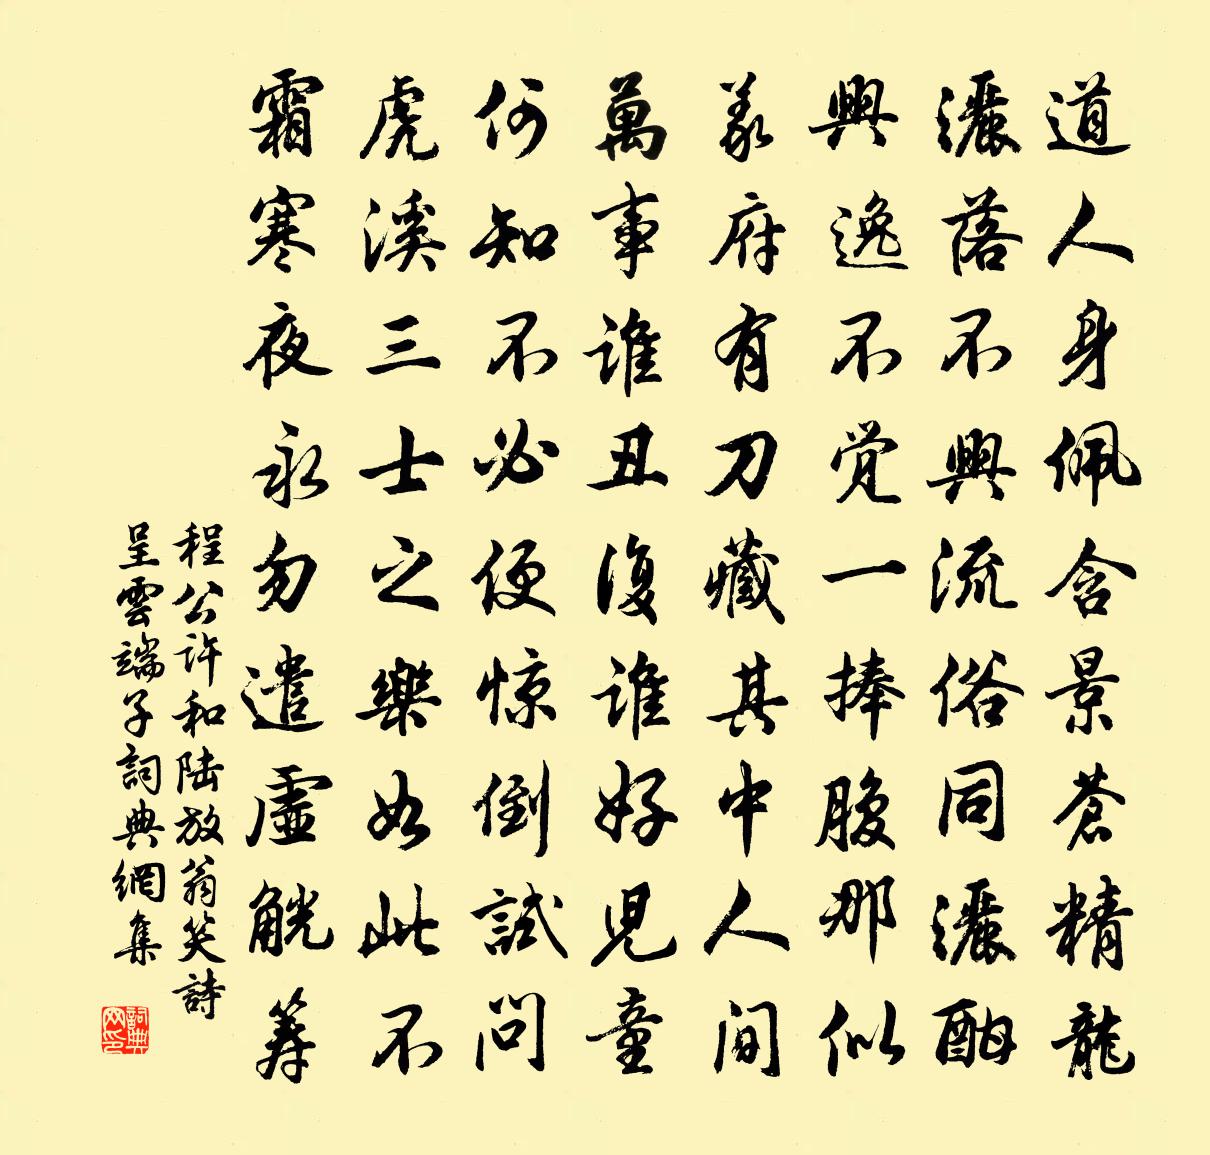 道人身佩含景蒼精龍
灑落不興流俗同灑酣
興逸不觉一捧腹那似
義府有刀藏其中人间
萬事谁丑復谁好児童
何知不必便惊倒試问
虎溪三士之樂如此不
霜寒夜永勿遣虚觥筹
程公许和陆放翁笑詩
呈雲端子詞典網集
詞典
网印